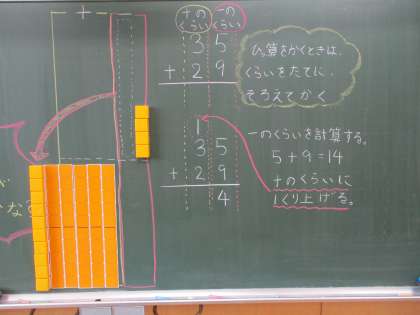 十
十の
くらい
一の
くらい
35
+29
1
35
+29
4
ひっ算をかくときは、
くらいをたてに
そろえてかく
一のくらいを計算する。
5+9=14
十のくらいに
1くり上げる。
が
な